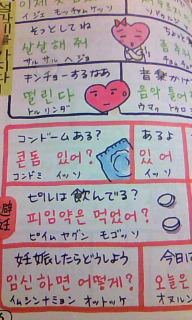 イジェ モッチャムケッソ
そっとしてね
살살해 줘
サル サル ヘ ジョ
キンチョーするなあ
떨린다
トルリンダ
音楽か
음악 틀어
コンドームある?
콘돔 있어?
コンドミ イッソ
あるよ
있어
イッソ
避妊
ピルは飲んでる?
피임약은 먹었어?
ピイムヤグン モゴッソ
妊娠したらどうしよう
임신 하면 어떻게?
イムシンナミョン オットッケ
今日
오늘은
オヌルン